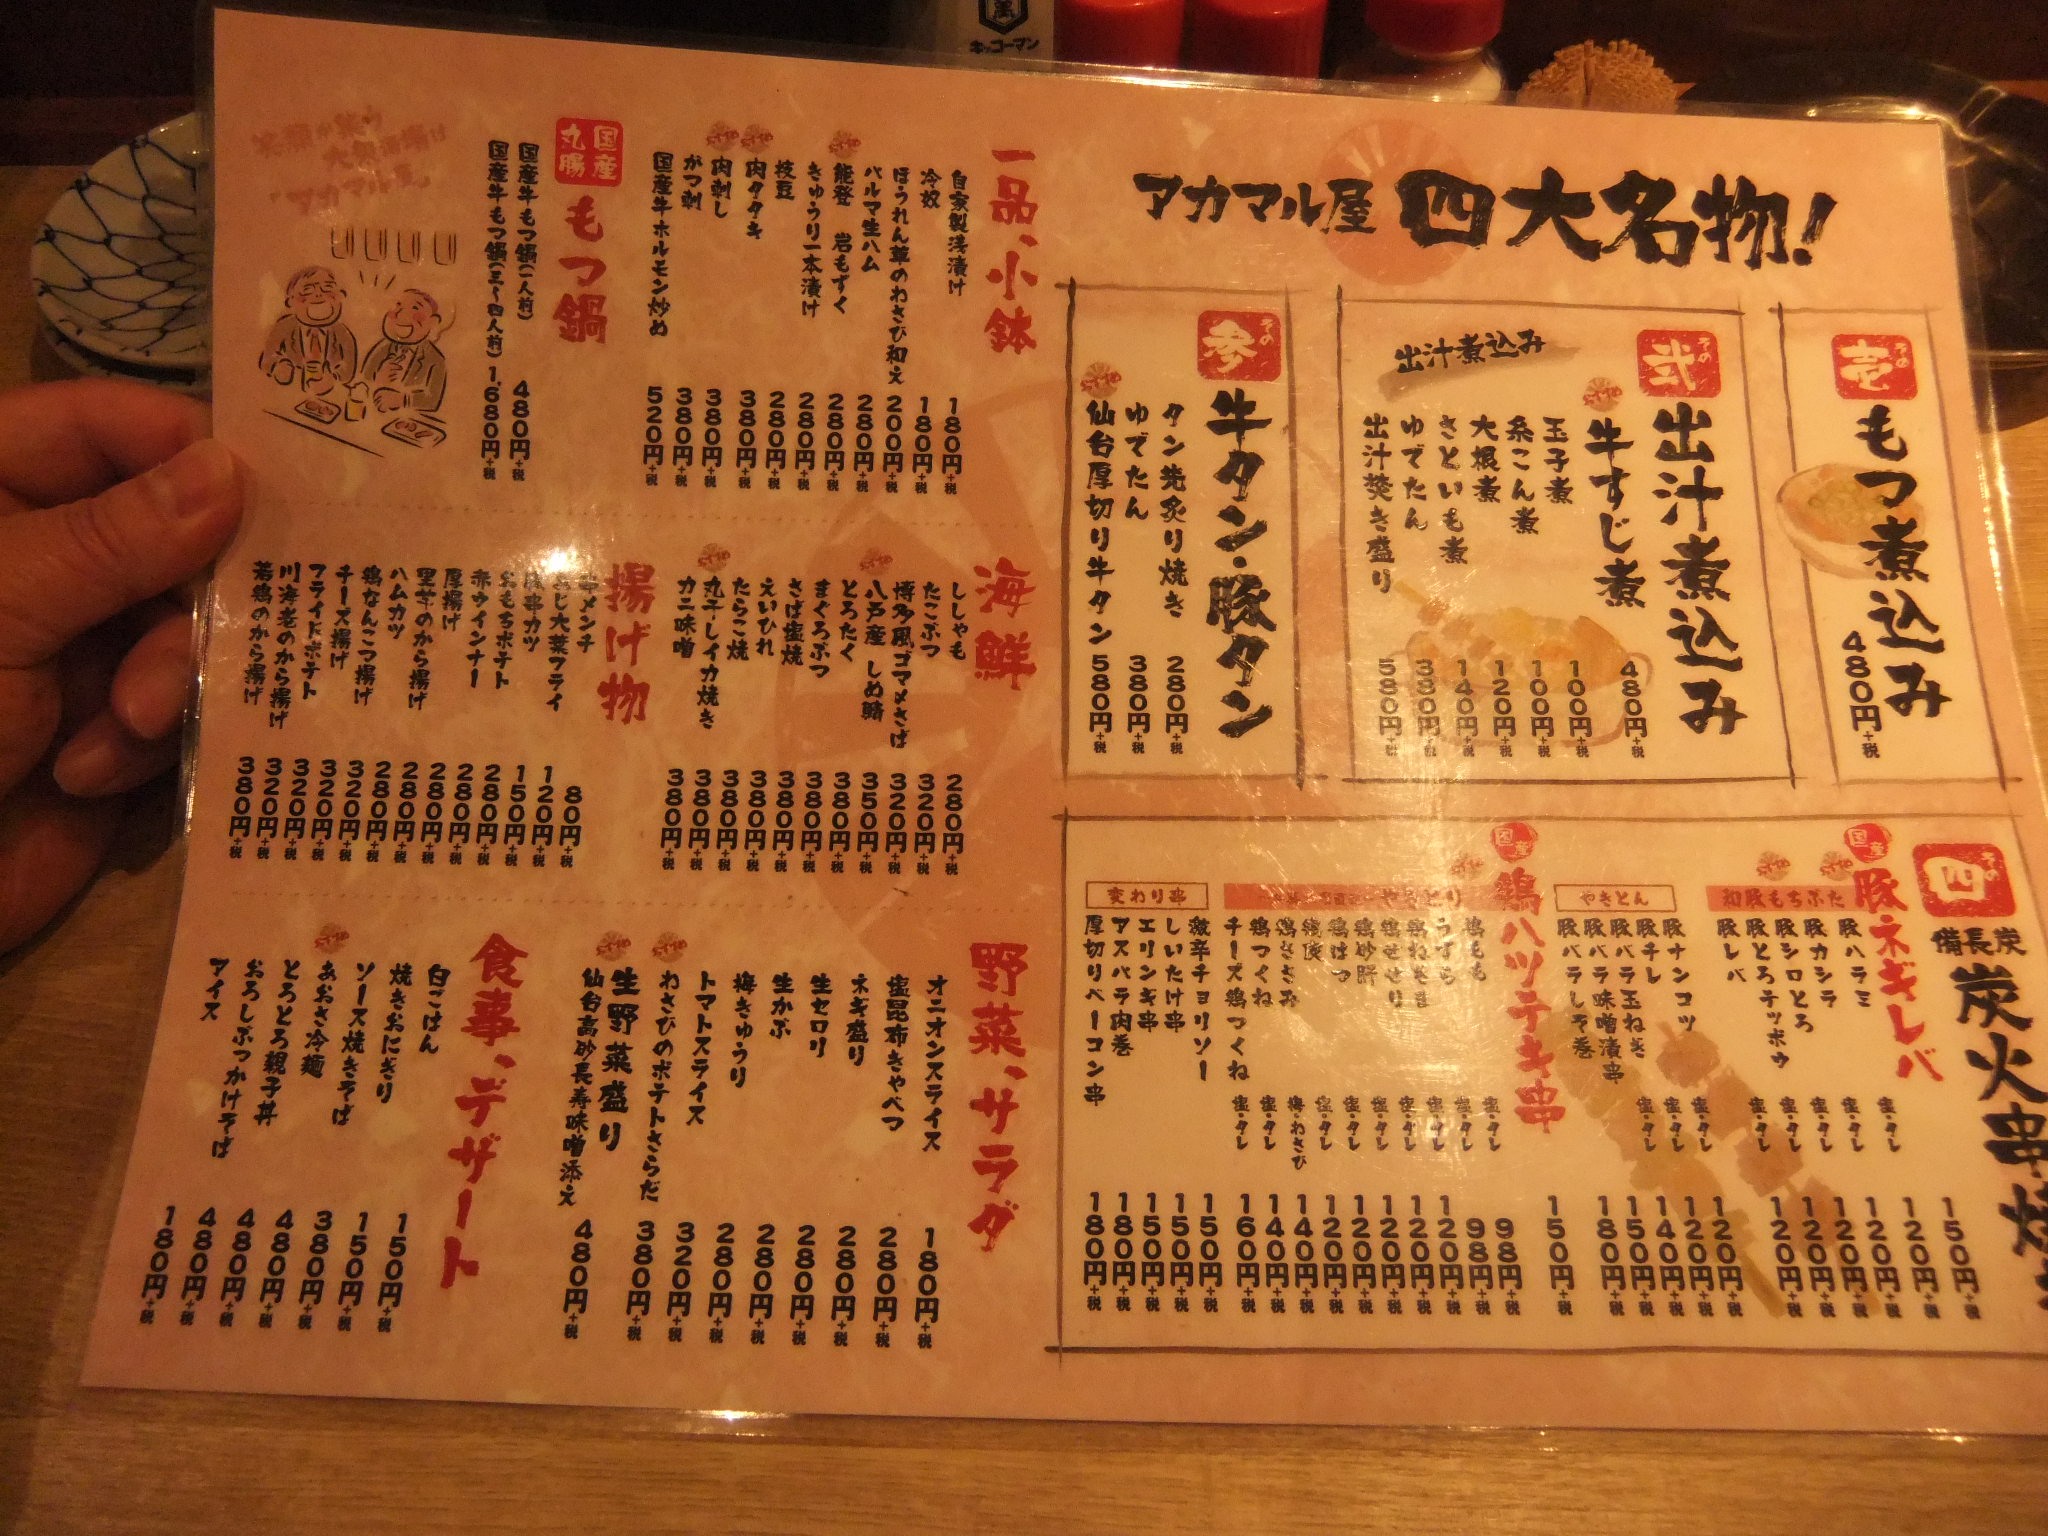 キッコーマン
アカマル屋 四大名物!
その壱
もつ煮込み 480円+税
その弐
出汁煮込み
牛すじ煮 480円+税
出汁煮込み
玉子煮 100円+税
糸こん煮 100円+税
大根煮 120円+税
さといも煮 140円+税
ゆでたん 380円+税
出汁焚き盛り 580円+税
その参
牛タン・豚タン
タン先炙り焼き 280円+税
ゆでたん 380円+税
仙台厚切り牛タン 580円+税
その四
備長炭
炭火串焼
国産
豚ネギレバ 150円+税
和豚もちぶた
豚ハラミ 塩・タレ 120円+税
豚カシラ 塩・タレ 120円+税
豚シロとろ 塩・タレ 120円+税
豚とろテッポウ 塩・タレ 120円+税
豚レバ 塩・タレ 120円+税
やきとん
豚ナンコツ 塩・タレ 120円+税
豚チレ 塩・タレ 120円+税
豚バラ玉ねぎ 塩・タレ 140円+税
豚バラ味噌漬串 150円+税
豚バラしそ巻 180円+税
国産
鶏ハツテキ串 150円+税
やきとり
鶏もも 塩・タレ 98円+税
うずら 塩・タレ 98円+税
鶏ねぎま 塩・タレ 120円+税
鶏せせり 塩・タレ 120円+税
鶏砂肝 塩・タレ 120円+税
鶏はつ 塩・タレ 120円+税
鶏皮 塩・タレ 120円+税
鶏ささみ 梅・わさび 140円+税
鶏つくね 塩・タレ 140円+税
チーズ鶏つくね 塩・タレ 160円+税
変わり串
激辛チョリソー 150円+税
しいたけ串 150円+税
エリンギ串 150円+税
アスパラ肉巻 180円+税
厚切りベーコン串 180円+税
一品、小鉢
自家製浅漬け 180円+税
冷奴 180円+税
ほうれん草のわさび和え 200円+税
パルマ生ハム 280円+税
能登 岩もずく 280円+税
きゅうり一本漬け 280円+税
枝豆 280円+税
肉タタキ 380円+税
肉刺し 380円+税
がつ刺 380円+税
国産牛ホルモン炒め 520円+税
国産丸腸
もつ鍋
国産牛もつ鍋(一人前) 480円+税
国産牛もつ鍋(三〜四人前) 1,680円+税
大衆酒場
「アカマル屋」
海鮮
ししゃも 280円+税
たこぶつ 320円+税
博多風ゴマメさば 320円+税
八戸産 しめ鯖 350円+税
とろたく 380円+税
まぐろぶつ 380円+税
さば塩焼 380円+税
えいひれ 380円+税
たらこ焼 380円+税
丸干しイカ焼き 380円+税
カニ味噌 380円+税
揚げ物
串メンチ 80円+税
あじ大葉フライ 120円+税
豚串カツ 150円+税
おもちポテト 280円+税
赤ウインナー 280円+税
厚揚げ 280円+税
里芋のから揚げ 280円+税
ハムカツ 280円+税
鶏なんこつ揚げ 320円+税
チーズ揚げ 320円+税
フライドポテト 320円+税
川海老のから揚げ 320円+税
若鶏のから揚げ 380円+税
野菜、サラダ
オニオンスライス 180円+税
塩昆布きゃべつ 280円+税
ネギ盛り 280円+税
生セロリ 280円+税
生かぶ 280円+税
梅きゅうり 280円+税
トマトスライス 320円+税
わさびのポテトさらだ 380円+税
生野菜盛り
仙台高砂長寿味噌添え 480円+税
食事、デザート
白ごはん 150円+税
焼きおにぎり 150円+税
ソース焼きそば 380円+税
あおさ冷麺 480円+税
とろとろ親子丼 480円+税
おろしぶっかけそば 480円+税
アイス 180円+税